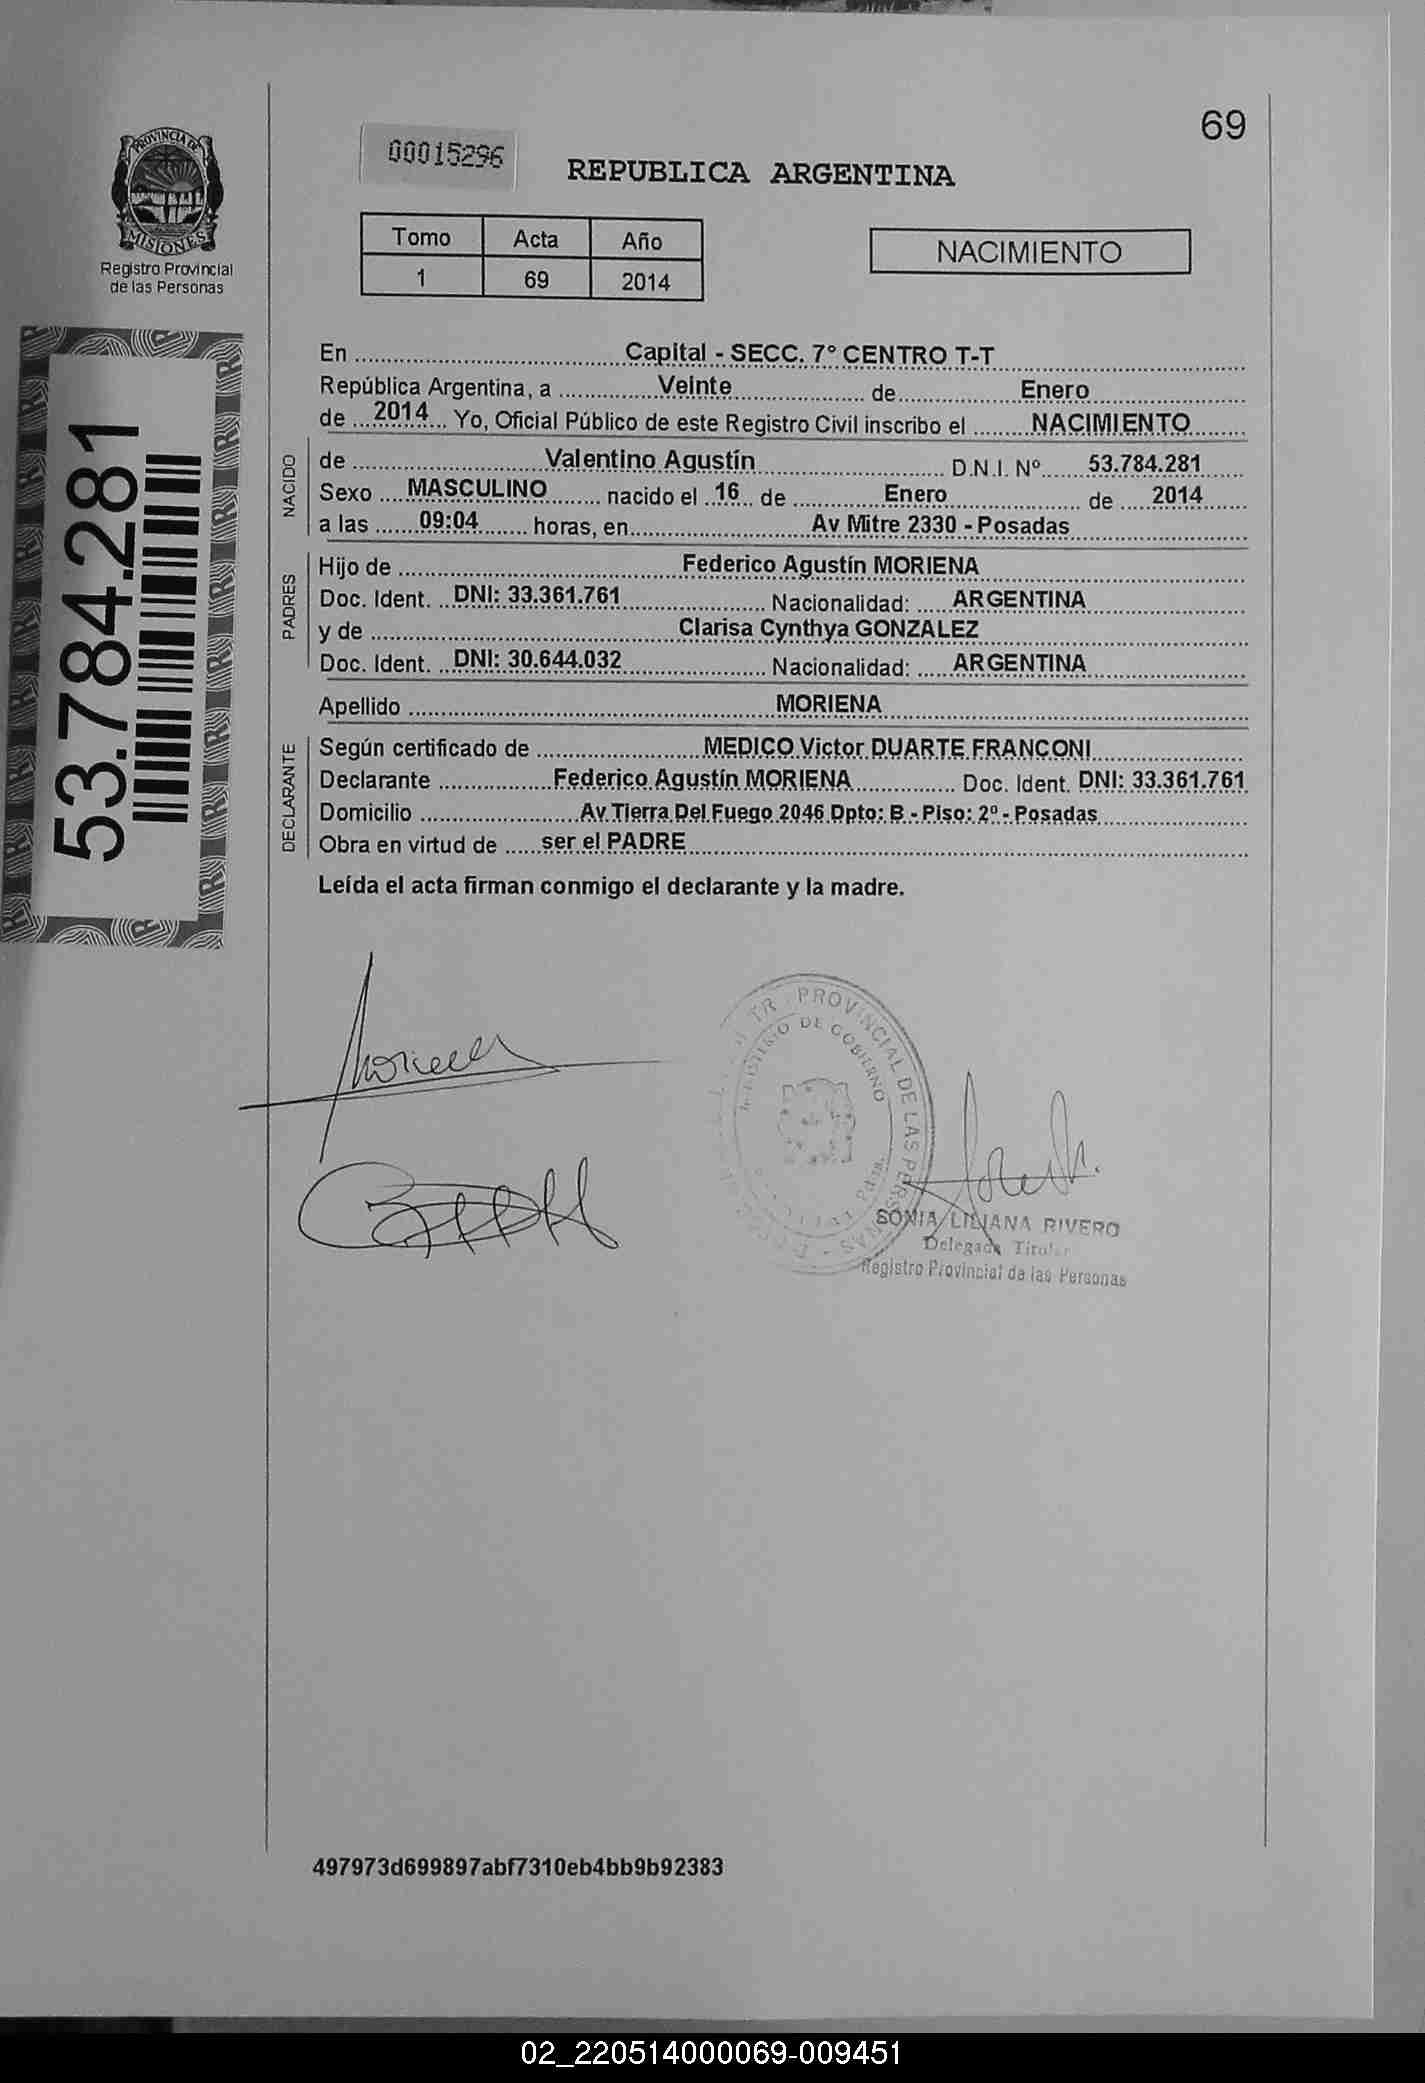 69
00015296
REPUBLICA ARGENTINA
PROVINCIA DE
MISIONES
Registro Provincial
de las Personas
Tomo Acta Año
1 69 2014
NACIMIENTO
53.784.281
En Capital - SECC. 7° CENTRO T-T
República Argentina, a Veinte de Enero
de 2014 Yo, Oficial Público de este Registro Civil inscribo el NACIMIENTO
NACIDO
de Valentino Agustín D.N.I. Nº 53.784.281
Sexo MASCULINO nacido el 16 de Enero de 2014
a las 09:04 horas, en Av Mitre 2330 - Posadas
PADRES
Hijo de Federico Agustín MORIENA
Doc. Ident. DNI: 33.361.761 Nacionalidad: ARGENTINA
y de Clarisa Cynthya GONZALEZ
Doc. Ident. DNI: 30.644.032 Nacionalidad: ARGENTINA
Apellido MORIENA
DECLARANTE
Según certificado de MEDICO Victor DUARTE FRANCONI
Declarante Federico Agustín MORIENA Doc. Ident. DNI: 33.361.761
Domicilio Av Tierra Del Fuego 2046 Dpto: B - Piso: 2º - Posadas
Obra en virtud de ser el PADRE
Leída el acta firman conmigo el declarante y la madre.
PROVINCIAL DE LAS PERSONAS
DE GOBIERNO
SONIA LILIANA RIVERO
Delegada Titular
Registro Provincial de las Personas
497973d699897abf7310eb4bb9b92383
02_220514000069-009451